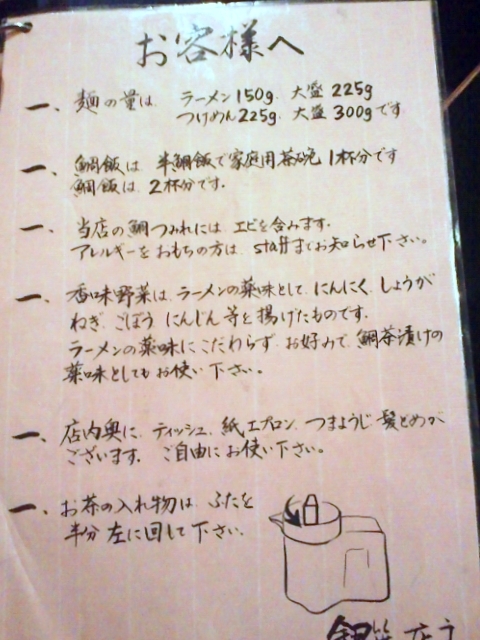 お客様へ
一、麺の量は、ラーメン150g、大盛225g
つけめん225g、大盛300gです
一、鯛飯は 半鯛飯で家庭用茶碗1杯分です
鯛飯は、2杯分です。
一、当店の鯛つみれには、エビを含みます。
アレルギーをおもちの方は、staffまでお知らせ下さい。
一、香味野菜は、ラーメンの薬味として、にんにく、しょうが
ねぎ、ごぼう、にんじん等を揚げたものです。
ラーメンの薬味にこだわらず、お好みで、鯛茶漬けの
薬味としてもお使い下さい。
一、店内奥に、ティッシュ、紙エプロン、つまようじ、髪どめが
ございます。ご自由にお使い下さい。
一、お茶の入れ物は、ふたを
半分左に回して下さい。